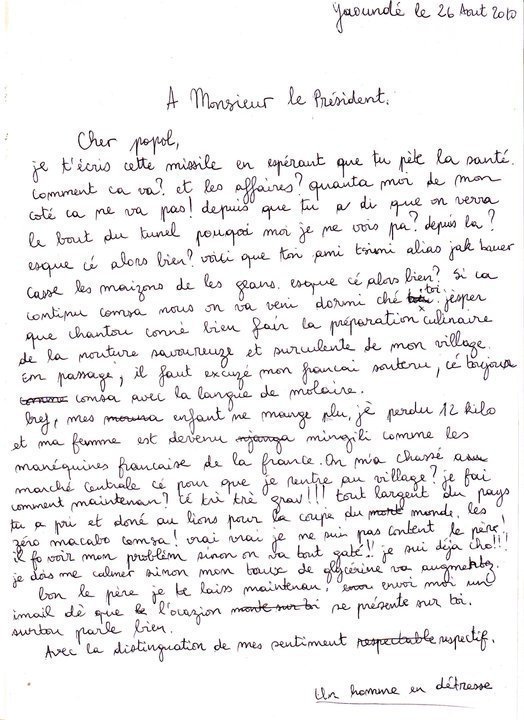 Yaoundé le 26 Aout 2010
A Monsieur le Président.
Cher popol,
je t'écris cette missile en espérant que tu pète la santé.
comment ca va? et les affaires? quanta moi de mon
coté ca ne va pas! depuis que tu a di que on verra
le bout du tunel pouqoi moi je ne vois pa? depuis la?
esque cé alors bien? voici que ton ami tsimi alias jak bauer
casse les maizons de les geans. esque cé alors bien? Si ca
continu comsa nous on va veni dormi ché toi. jesper
que chantou conné bien fair la préparation culinaire
de la nouture savoureuze et surculente de mon village.
Em passage, il faut excuzé mon francai soutenu, cé toujours
comsa avec la langue de molaire.
bref, mes enfant ne mange plu, jè perdu 12 kilo
et ma femme est devenu mingili comme les
manéquines francaise de la france. On m'a chassé au
marché centrale cé pour que je rentre au village? je fai
comment maintenan? cé trè trè grav!!! tout largent du pays
tu a pri et doné au lions pour la coupe du monde. les
zéro macabo comsa! vrai vrai je ne suin pas content le père!
il fo voir mon problém sinon on va tout gaté!! je sui déja cho!!!
je dois me calmer sinon mon taux de glycérine va augmenter.
bon le père je te laiss maintenan, envoi moi un
imail dè que l'ocazion se présente sur toi.
surtou parle bien.
Avec la distinguation de mes sentiment respectable respectif.
Un homme en détresse